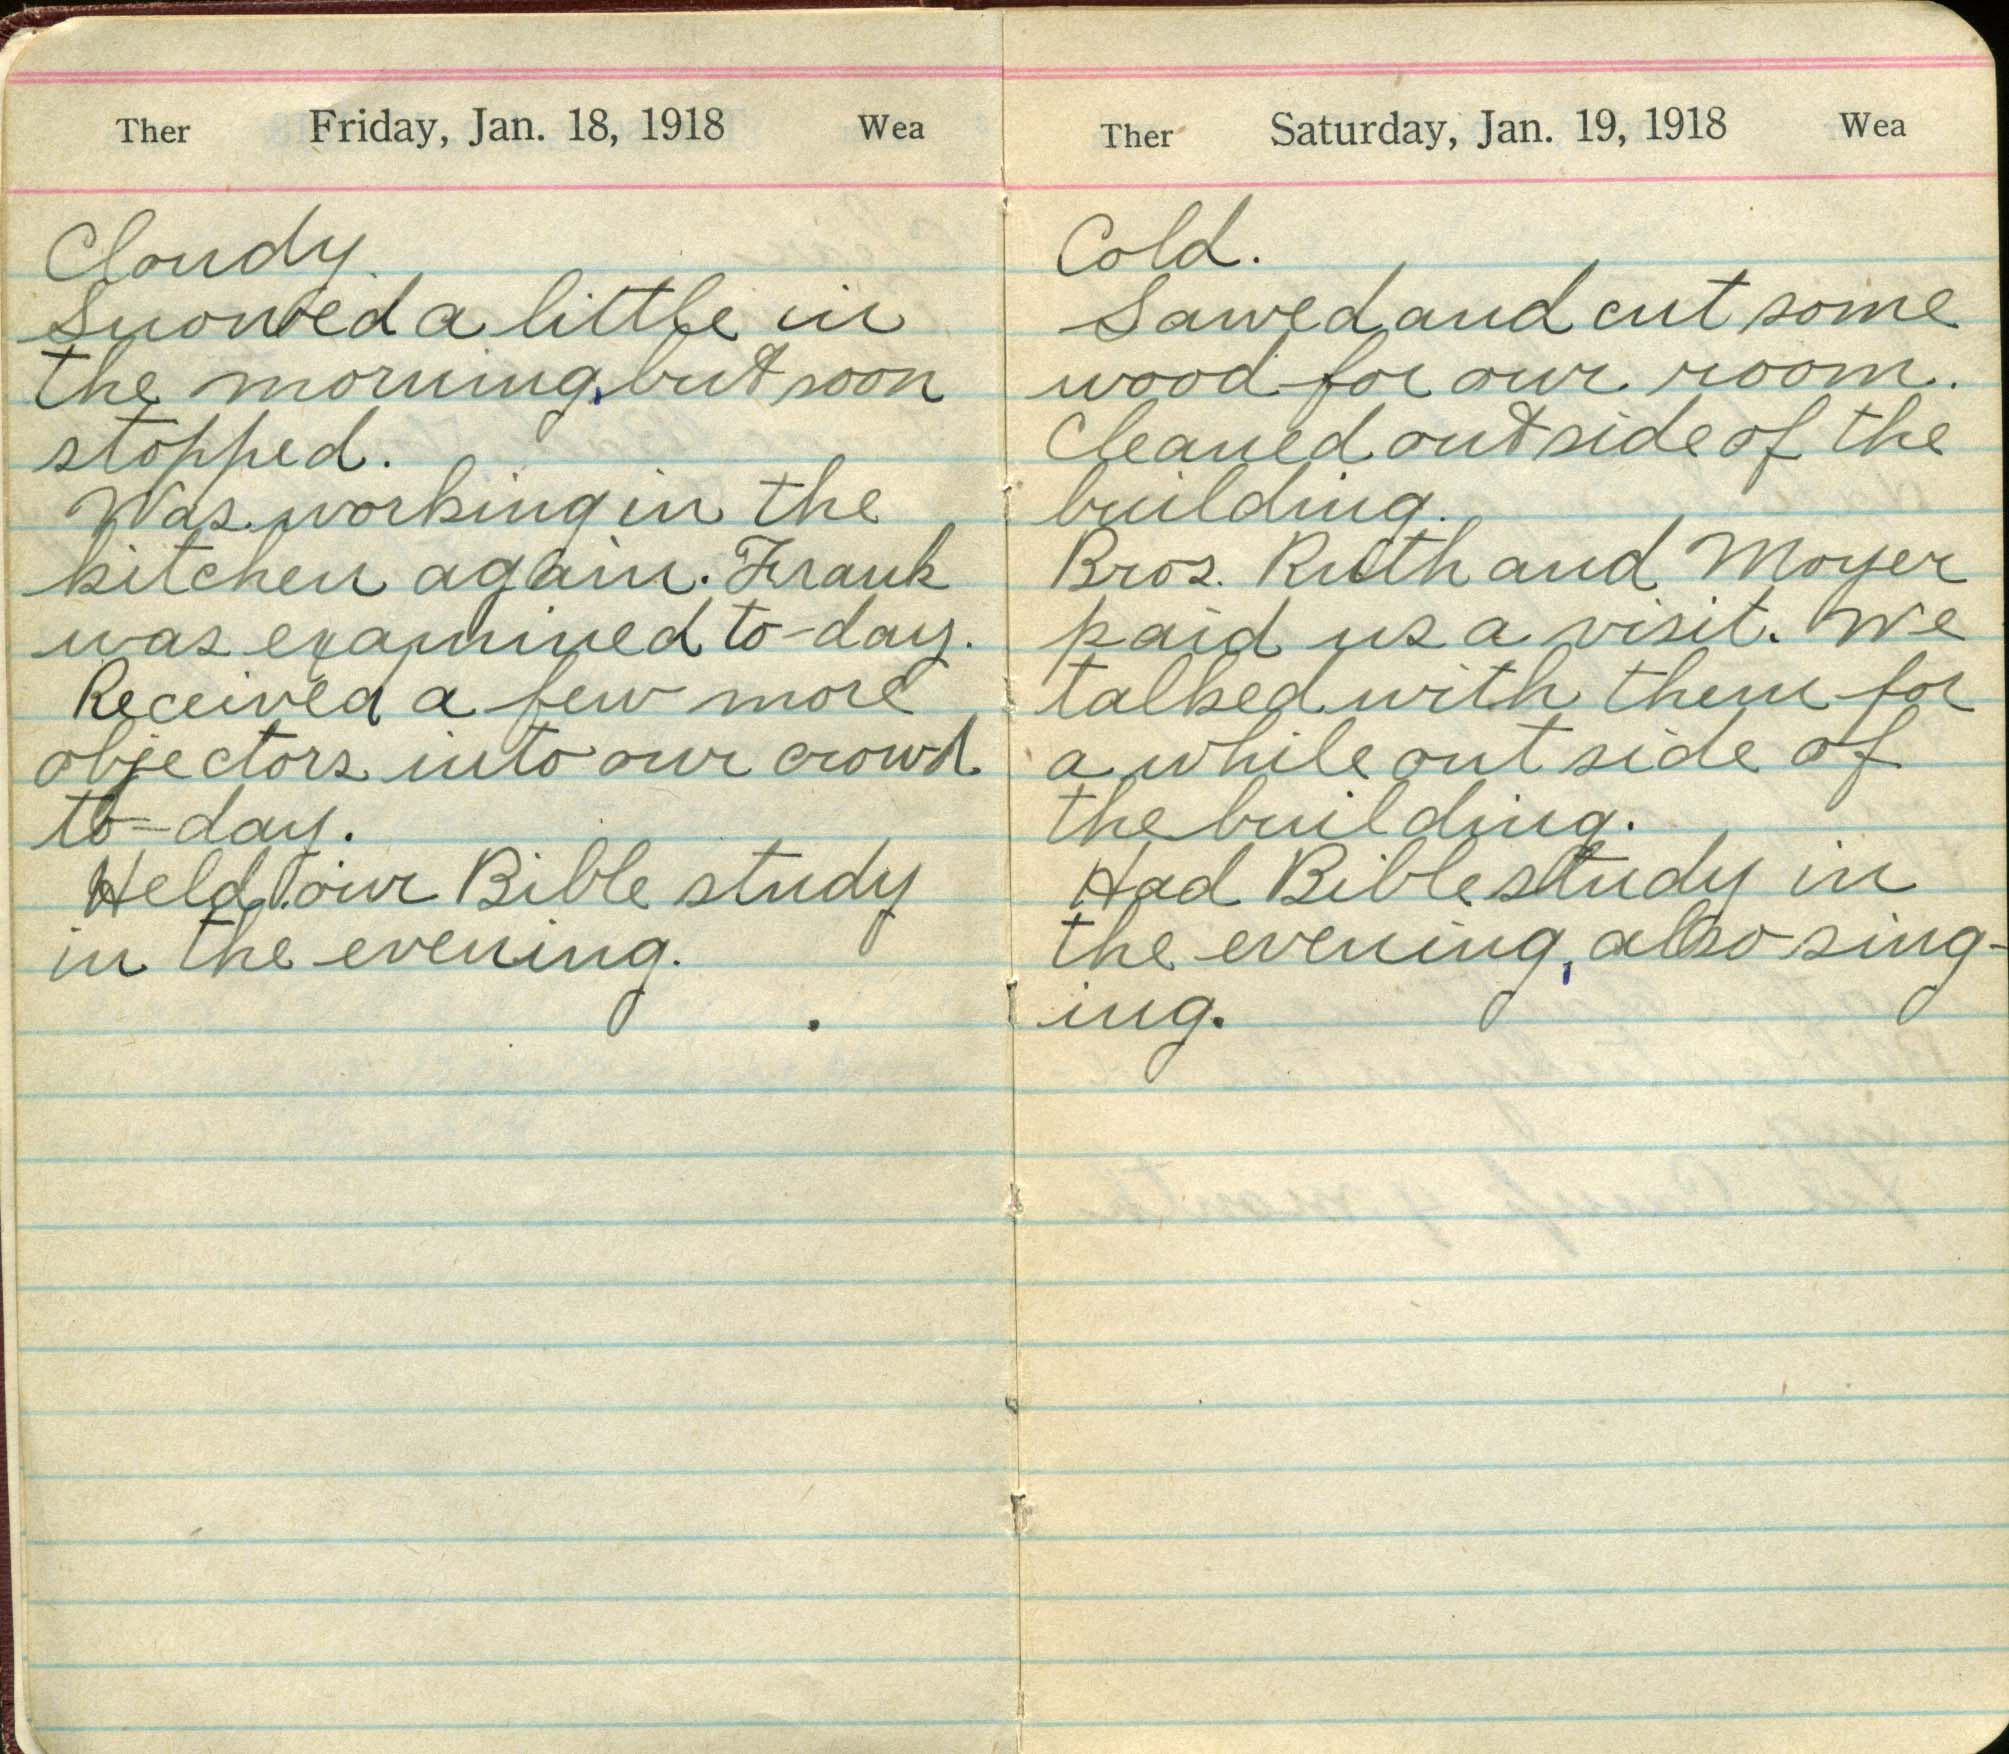 Ther Friday, Jan. 18, 1918 Wea
Cloudy.
Snowed a little in
the morning, but soon
stopped.
Was working in the
kitchen again. Frank
was examined to-day.
Received a few more
objectors into our crowd
to-day.
Held our Bible study
in the evening.
Ther Saturday, Jan. 19, 1918 Wea
Cold.
Sawed and cut some
wood for our room.
Cleaned outside of the
building.
Bros. Ruth and Moyer
paid us a visit. We
talked with them for
a while outside of
the building.
Had Bible study in
the evening, also sing-
ing.